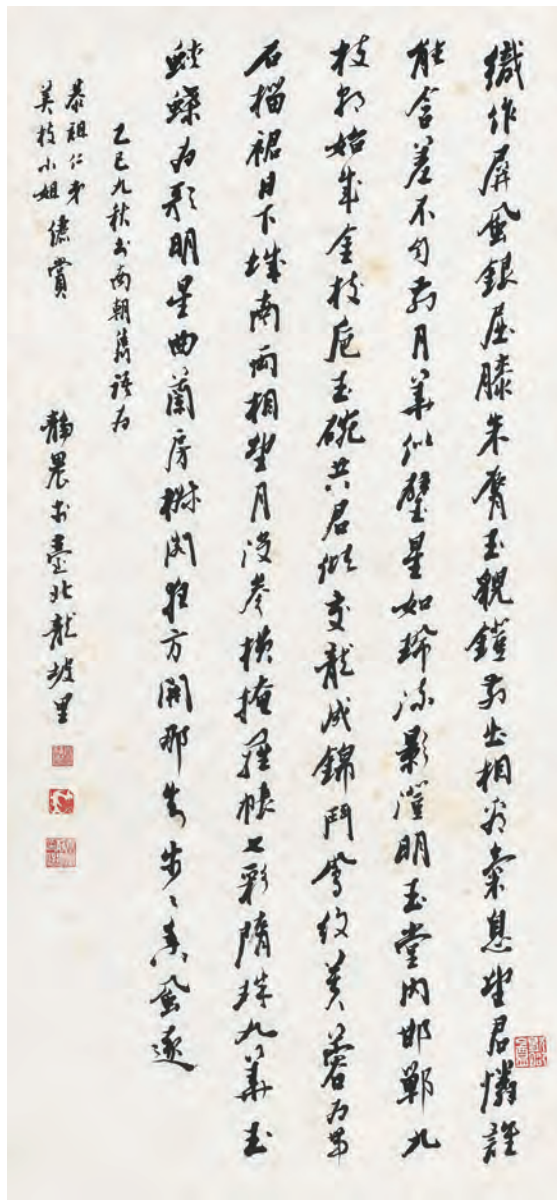 織作屏風銀屈膝朱脣玉貌鐙前出相看氣息望君憐誰
能含羞不自前月華似璧星如珮流影澄明玉堂內邯鄲九
枝朝始成金枝卮玉碗共君傾交龍成錦鬥鳳紋芙蓉為帶
石榴裙日下城南兩相望月沒參橫掩羅帳七彩隋珠九華玉
蛺蝶為歌明星曲蘭房椒閣夜方開那知步〻香風逐
乙巳九秋書南朝雋語為
祖仁弟
美枝小姐 儷賞
靜農於臺北龍坡里